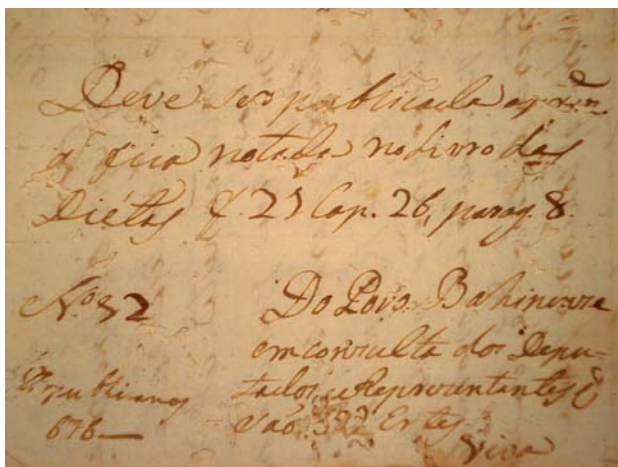 Deve ser publicada a
q fica notada no Livro das
Diétas f. 25 Cap. 26, parag. 8.
Nº 32
Do Povo Bahinence
em consulta dos Depu-
tados, e Reprezentantes
saó
Republicanos
676
Viva